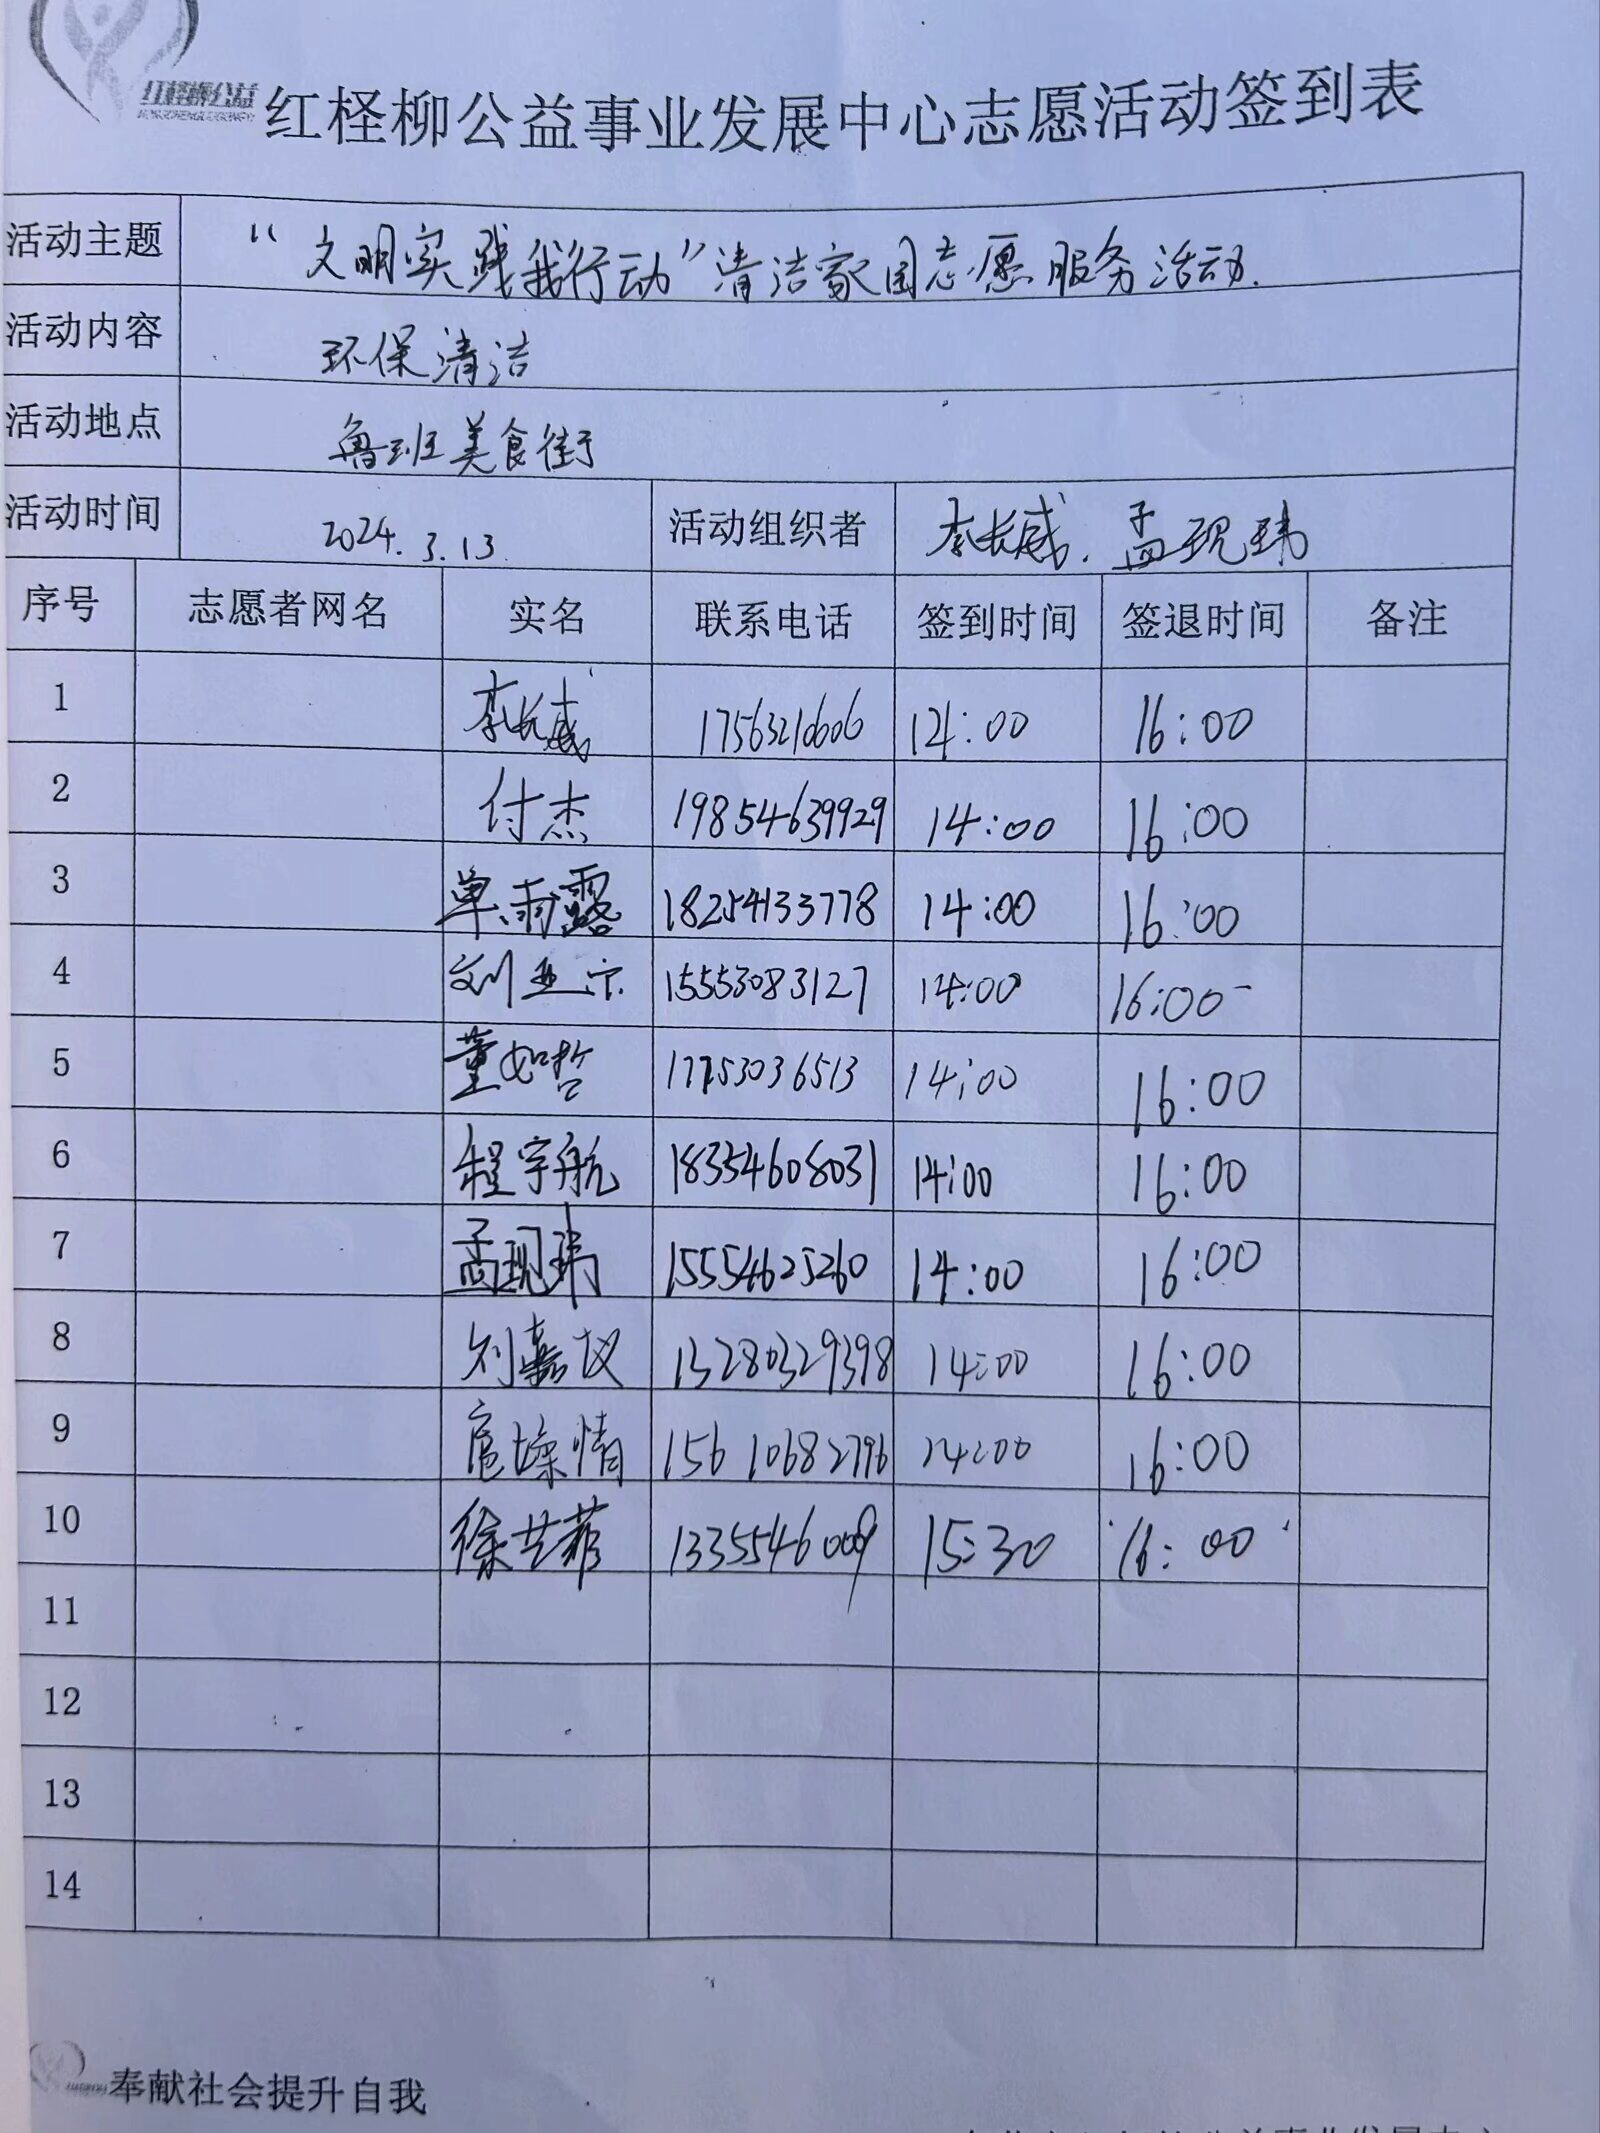 红柽柳公益
红柽柳公益事业发展中心志愿活动签到表
活动主题 “文明实践我行动”清洁家园志愿服务活动.
活动内容 环保清洁
活动地点 鲁班美食街
活动时间 2024.3.13 活动组织者 李长威.孟现玮
序号 志愿者网名 实名 联系电话 签到时间 签退时间 备注
1 李长威 17563210606 14:00 16:00
2 付杰 19854639929 14:00 16:00
3 单雨露 18254133778 14:00 16:00
4 刘亚宁 15553083127 14:00 16:00
5 董如哲 17753036513 14:00 16:00
6 程宇航 18354608031 14:00 16:00
7 孟现玮 15554625260 14:00 16:00
8 刘嘉仪 13280329398 14:00 16:00
9 15610682796 14:00 16:00
10 徐艺菲 1335546009 15:30 16:00
11
12
13
14
奉献社会提升自我